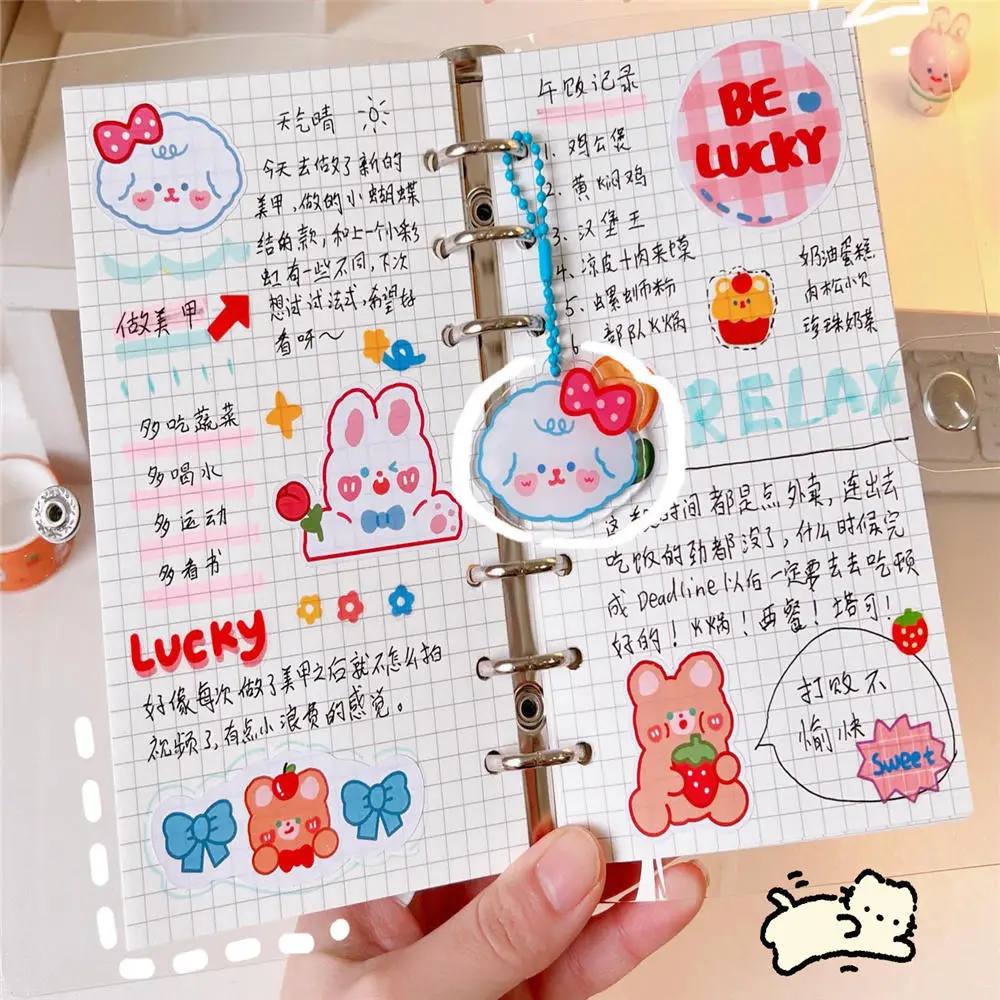 天气晴
今天去做了新的
美甲，做的小蝴蝶
结的款，和上一个小彩
虹有一些不同，下次
想试试法式，希望好
看呀～
做美甲
多吃蔬菜
多喝水
多运动
多看书
LUCKY
好像每次做了美甲之后就不怎么拍
视频了，有点小浪费的感觉。
午饭记录
1. 鸡公煲
2. 黄焖鸡
3. 汉堡王
4. 凉皮+肉夹馍
5. 螺蛳粉
6 部队火锅
BE
LUCKY
奶油蛋糕
肉松小贝
珍珠奶茶
RELAX
这 时间都是点外卖，连出去
吃饭的劲都没了，什么时候完
成Deadline以后一定要去去吃顿
好的！火锅！西餐！塔可！
打败不
愉快
Sweet